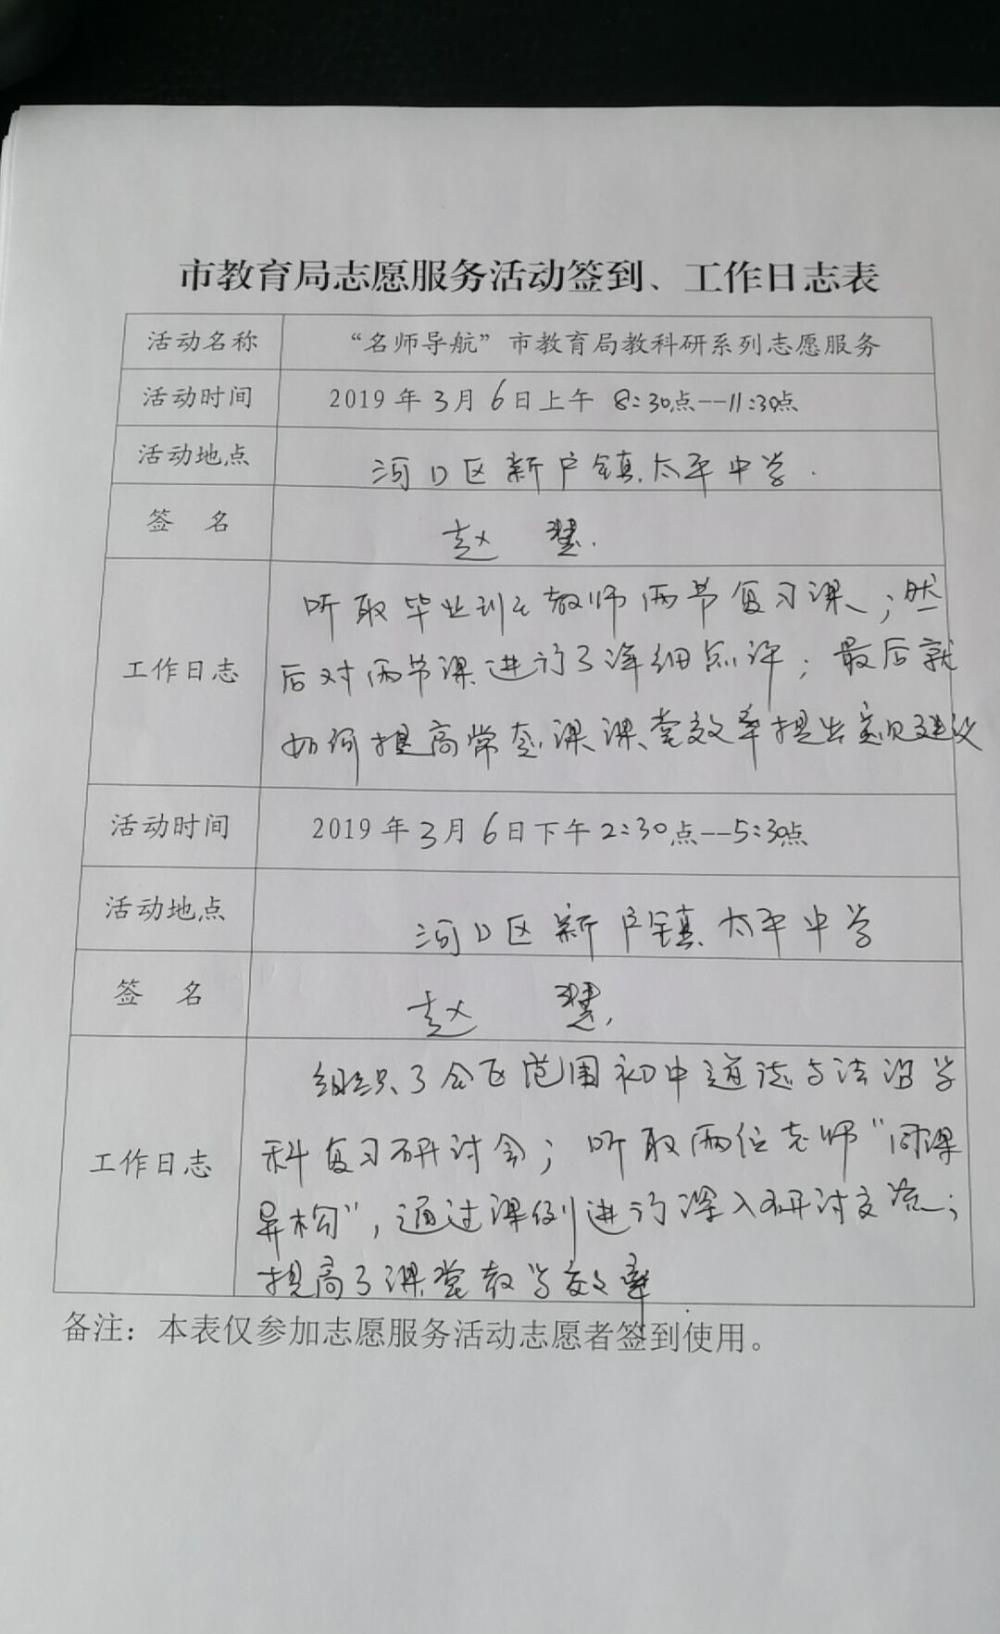 市教育局志愿服务活动签到、工作日志表
活动名称 “名师导航”市教育局教科研系列志愿服务
活动时间 2019年3月6日上午 8:30点--11:30点
活动地点 河口区新户镇太平中学.
签 名 赵 慧.
听取毕业班教师两节复习课;然
工作日志 后对两节课进行了详细点评;最后就
如何提高常态课课堂效率提出意见建议
活动时间 2019年3月6日下午2:30点--5:30点
活动地点 河口区新户镇太平中学
签 名 赵 慧.
组织了全区范围初中道德与法治学
工作日志 科复习研讨会;听取两位老师“同课
异构”,通过课例进行深入研讨交流;
提高了课堂教学效率
备注：本表仅参加志愿服务活动志愿者签到使用。